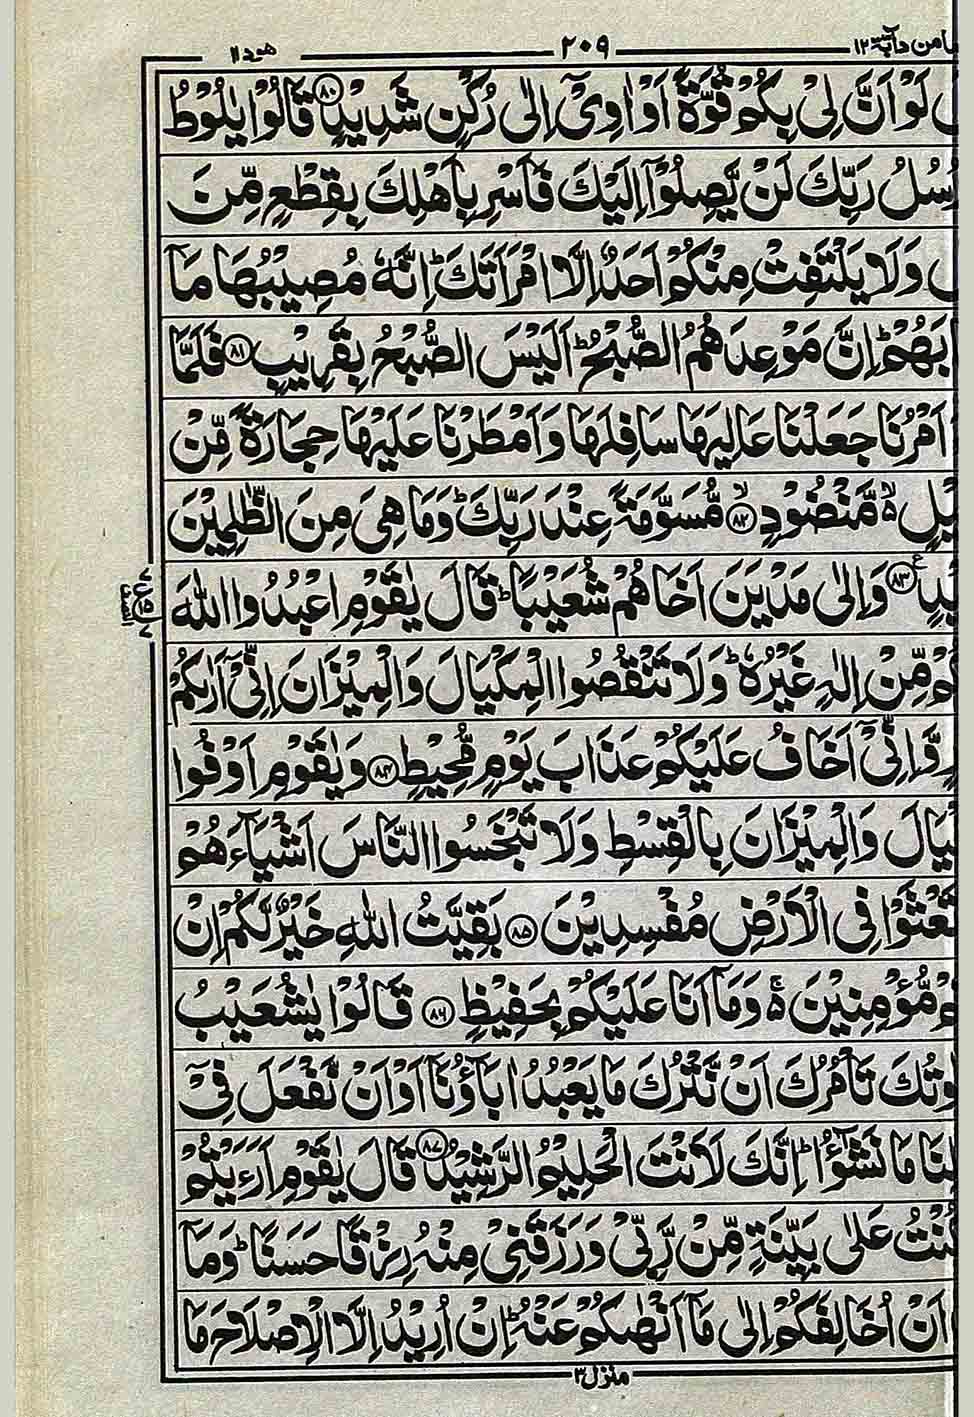 هود ۱۱ ۲۰۹ دآبة ۱۲
لَوْ اَنَّ لِیْ بِكُمْ قُوَّةً اَوْ اٰوِیْۤ اِلٰی رُكْنٍ شَدِیْدٍ ﴿۸۰﴾ قَالُوْا یٰلُوْطُ
رَبِّكَ لَنْ یَّصِلُوْۤا اِلَیْكَ فَاَسْرِ بِاَهْلِكَ بِقِطْعٍ مِّنَ
وَلَا یَلْتَفِتْ مِنْكُمْ اَحَدٌ اِلَّا امْرَاَتَكَ ؕ اِنَّهٗ مُصِیْبُهَا مَاۤ
اِنَّ مَوْعِدَهُمُ الصُّبْحُ ؕ اَلَیْسَ الصُّبْحُ بِقَرِیْبٍ ﴿۸۱﴾ فَلَمَّا
اَمْرُنَا جَعَلْنَا عَالِیَهَا سَافِلَهَا وَاَمْطَرْنَا عَلَیْهَا حِجَارَةً مِّنْ
مَّنْضُوْدٍ ﴿۸۲﴾ مُّسَوَّمَةً عِنْدَ رَبِّكَ ؕ وَمَا هِیَ مِنَ الظّٰلِمِیْنَ
﴿۸۳﴾ وَاِلٰی مَدْیَنَ اَخَاهُمْ شُعَیْبًا ؕ قَالَ یٰقَوْمِ اعْبُدُوا اللّٰهَ
مِّنْ اِلٰهٍ غَیْرُهٗ ؕ وَلَا تَنْقُصُوا الْمِكْیَالَ وَالْمِیْزَانَ اِنِّیْۤ اَرٰىكُمْ
وَّاِنِّیْۤ اَخَافُ عَلَیْكُمْ عَذَابَ یَوْمٍ مُّحِیْطٍ ﴿۸۴﴾ وَیٰقَوْمِ اَوْفُوا
وَالْمِیْزَانَ بِالْقِسْطِ وَلَا تَبْخَسُوا النَّاسَ اَشْیَآءَهُمْ
فِی الْاَرْضِ مُفْسِدِیْنَ ﴿۸۵﴾ بَقِیَّتُ اللّٰهِ خَیْرٌ لَّكُمْ اِنْ
مُّؤْمِنِیْنَ ۚ۬ وَمَاۤ اَنَا عَلَیْكُمْ بِحَفِیْظٍ ﴿۸۶﴾ قَالُوْا یٰشُعَیْبُ
تَاْمُرُكَ اَنْ نَّتْرُكَ مَا یَعْبُدُ اٰبَآؤُنَاۤ اَوْ اَنْ نَّفْعَلَ فِیْۤ
مَا نَشٰٓؤُا ؕ اِنَّكَ لَاَنْتَ الْحَلِیْمُ الرَّشِیْدُ ﴿۸۷﴾ قَالَ یٰقَوْمِ اَرَءَیْتُمْ
عَلٰی بَیِّنَةٍ مِّنْ رَّبِّیْ وَرَزَقَنِیْ مِنْهُ رِزْقًا حَسَنًا ؕ وَمَاۤ
اَنْ اُخَالِفَكُمْ اِلٰی مَاۤ اَنْهٰىكُمْ عَنْهُ ؕ اِنْ اُرِیْدُ اِلَّا الْاِصْلَاحَ مَا
منزل ۳